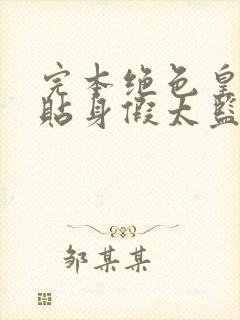 完本绝色皇
贴身假太监
邹某某